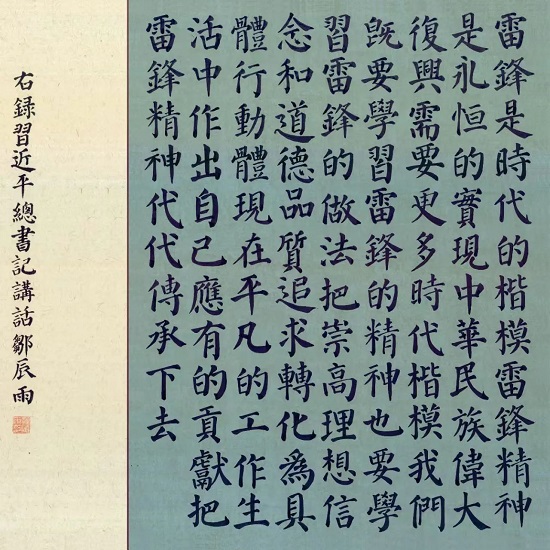 雷鋒是時代的楷模雷鋒精神
是永恒的實現中華民族偉大
復興需要更多時代楷模我們
既要學習雷鋒的精神也要學
習雷鋒的做法把崇高理想信
念和道德品質追求轉化為具
體行動體現在平凡的工作生
活中作出自己應有的貢獻把
雷鋒精神代代傳承下去
右錄習近平總書記講話鄒辰雨